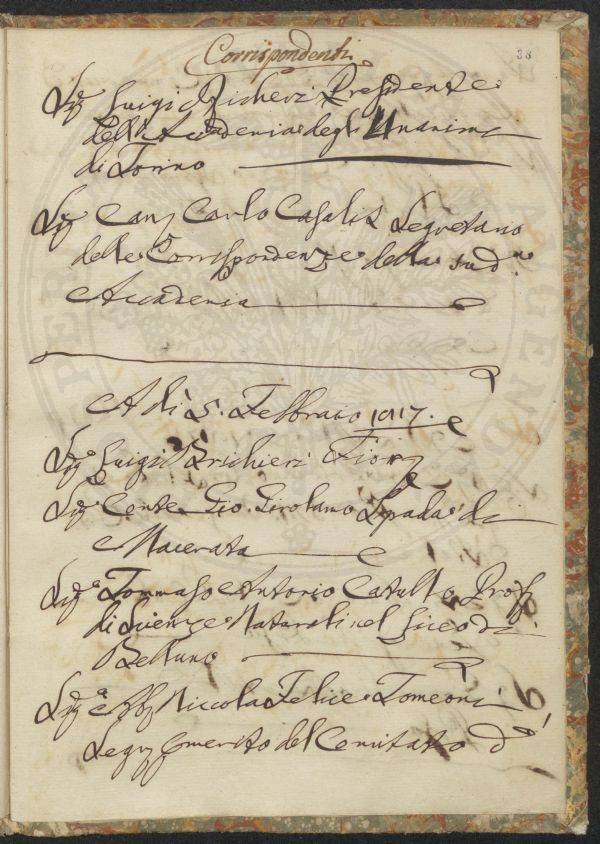 Corrispondenti
38
Sig.e Luigi Richeri Presidente
dell'Accademia degli Unanimi
di Torino
Sig. Can. Carlo Casalis Segretario
delle Corrispondenze della sud.a
Accademia
A dì 5. Febbraio 1817.
Sig.e Luigi Brichieri
Sig. Conte Gio. Girolamo Spada di
Macerata
Sig.e Tommaso Antonio Catullo Prof.
di Scienze Naturali nel Liceo di
Belluno
Sig.e Ab. Niccola Felice Tomeoni
Seg. Emerito del Comitato d